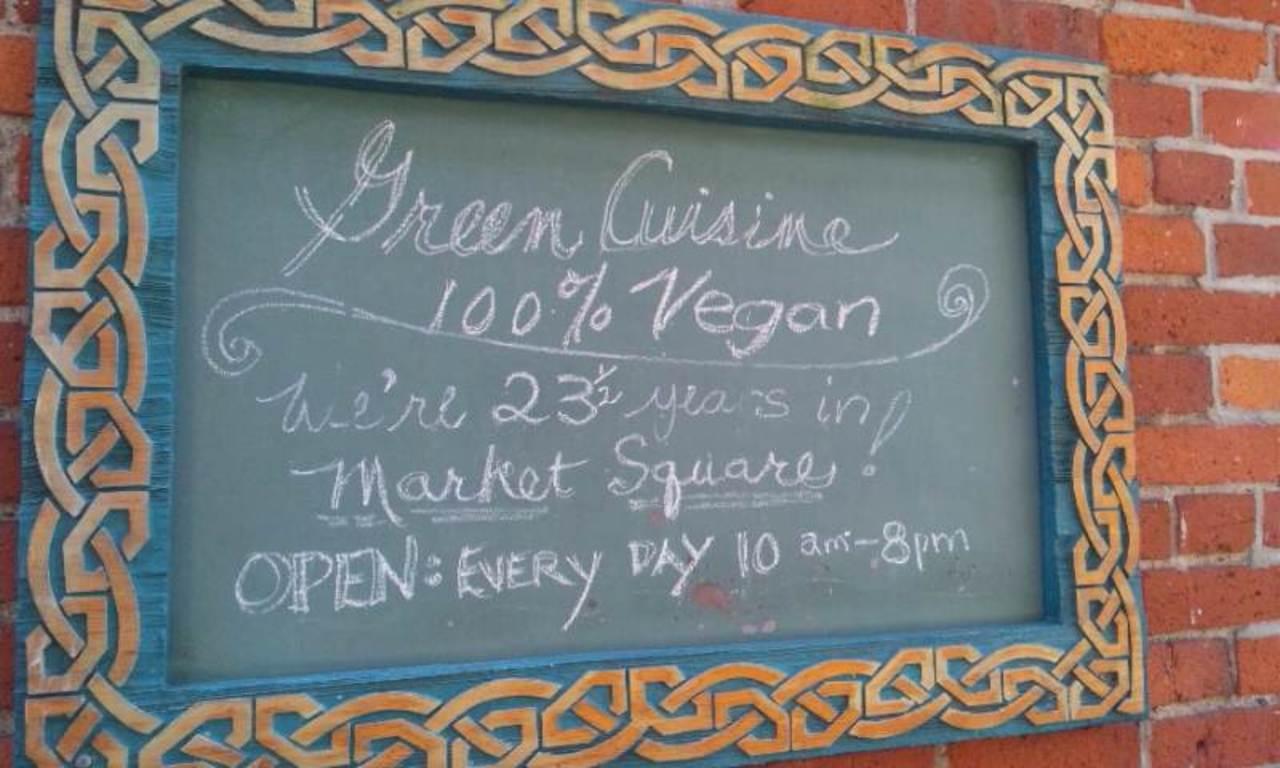 Green Cuisine
100% Vegan
We're 23½ years in
Market Square!
OPEN: EVERY DAY 10 am-8pm